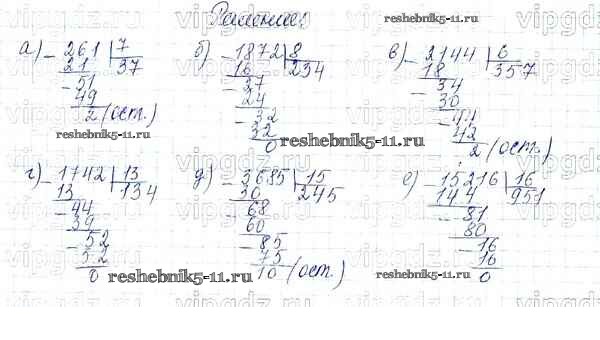 Решение:
reshebnik5-11.ru
а) - 261 | 7
21 | 37
- 51
49
2 (ост.)
reshebnik5-11.ru
б) - 1872 | 8
16 | 234
- 27
24
- 32
32
0
reshebnik5-11.ru
в) - 2144 | 6
18 | 357
- 34
30
- 44
42
2 (ост.)
г) - 1742 | 13
13 | 134
- 44
39
- 52
52
0
reshebnik5-11.ru
д) - 3685 | 15
30 | 245
- 68
60
- 85
75
10 (ост.)
е) - 15216 | 16
144 | 951
- 81
80
- 16
16
0
reshebnik5-11.ru
vipgdz.ru